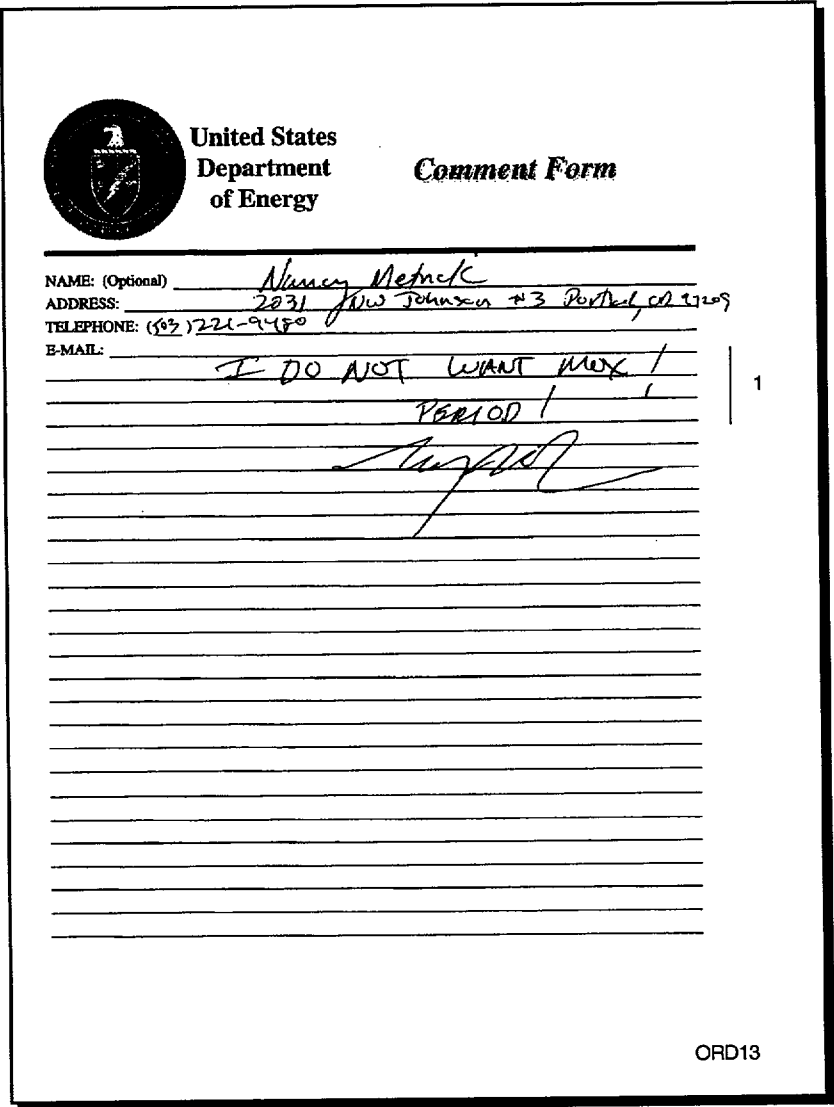 United States
Department
of Energy
Comment Form
NAME: (Optional) Nancy Metrick
ADDRESS: 2031 NW Johnson #3 Portland, OR 97209
TELEPHONE: (503) 221-9480
E-MAIL:
I DO NOT WANT MOX!
PERIOD!
1
ORD13